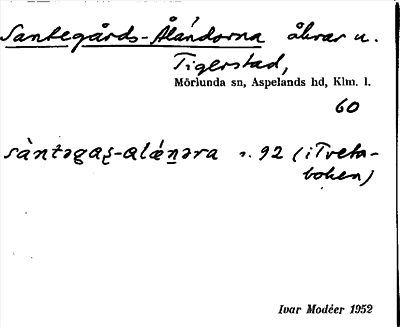 Santegårds-Ålándorna åkrar u.
Tigerstad,
Mörlunda sn, Aspelands hd, Klm. l.
60
sàntəgaʂ-alǽn̲əra n. 92 (i Tveta-
boken)
Ivar Modéer 1952